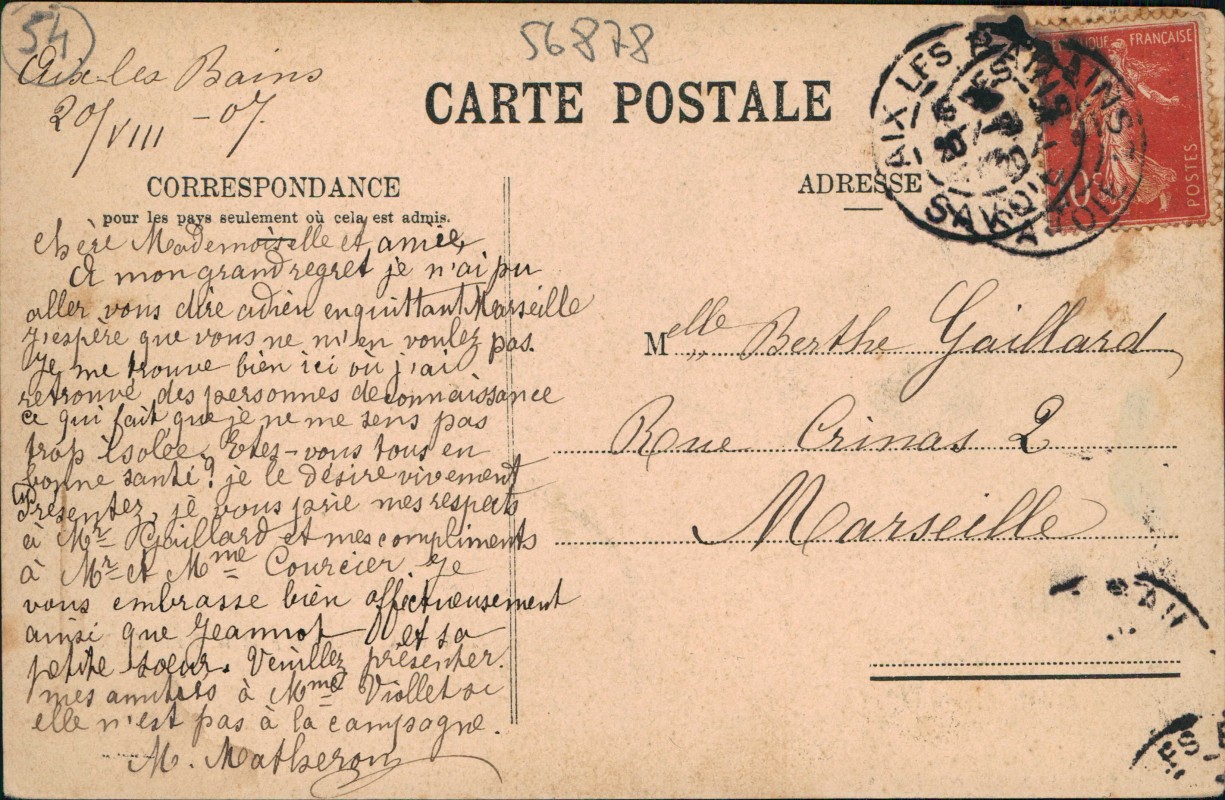 54
56878
Aix-les Bains
20/VIII -07.
CARTE POSTALE
CORRESPONDANCE
pour les pays seulement où cela est admis.
ADRESSE
Chère Mademoiselle et amie,
A mon grand regret je n'ai pu
aller vous dire adieu en quittant Marseille
J'espère que vous ne m'en voulez pas.
Je me trouve bien ici où j'ai
retrouvé des personnes de connaissance
ce qui fait que je ne me sens pas
trop isolée. Etes-vous tous en
bonne santé? je le désire vivement
Présentez, je vous prie mes respects
à Mr Gaillard et mes compliments
à Mr et Mme Courcier. Je
vous embrasse bien affectueusement
ainsi que Jeannot et sa
petite sœur. Veuillez présenter
mes amitiés à Mme Viollet si
elle n'est pas à la campagne.
M. Matheron
Melle Berthe Gaillard
Rue Crinas 2
Marseille
AIX LES BAINS
SAVOIE
FRANÇAISE
POSTES